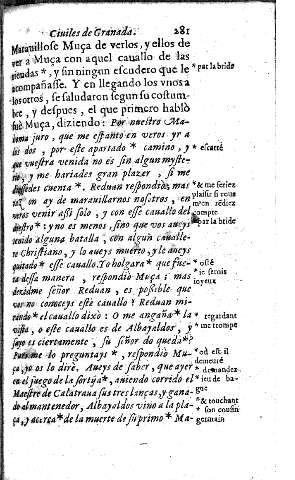 Ciuiles de Granada. 281
Marauillose Muça de verlos, y ellos de
ver a Muça con aquel cauallo de las
riendas *, y sin ningun escudero que le
acompañasse. Y en llegando los vnos a
los otros, se saludaron segun su costum-
bre, y despues, el que primero hablò
fuè Muça, diziendo: Por nuestro Ma-
homa juro, que me espanto en veros yr a
los dos, por este apartado * camino, y
que vuestra venida no es sin algun myste-
rio, y me hariades gran plazer, si me
diessedes cuenta *. Reduan respondiò, mas
razon ay de marauillarnos nosotros, en
veros venir assi solo, y con esse cauallo del
diestro *: y no es menos, sino que vos aueys
tenido alguna batalla, con algun caualle-
ro Christiano, y lo aueys muerto, y le aueys
quitado * esse cauallo. Yo holgara * que fue-
ra dessa manera, respondiò Muça; mas
dezidme señor Reduan, es possible que
vos no conoceys estè cauallo? Reduan mi-
rando * el cauallo dixò: O me engaña * la
vista, o este cauallo es de Albayaldos, y
suyo es ciertamente, su señor do queda *?
Pues me lo preguntays *, respondiò Mu-
ça, yo os lo dirè. Aueys de saber, que ayer
en el juego de la sortija *, auiendo corrido el
Maestre de Calatraua sus tres lanças, y gana-
do al mantenedor, Albayaldos vino a la pla-
ça, y acerca * de la muerte de su primo * Ma-
* par la bride
* escarté
* & me feriez
plaisir si vous
m'en rédiez
compte
* par la bride
* osté
* ie serois
ioyeux
* regardant
* me trompe
* où est il
demeuré
* demandez
* ieu de ba-
gue
* & touchant
* son cousin
garnison